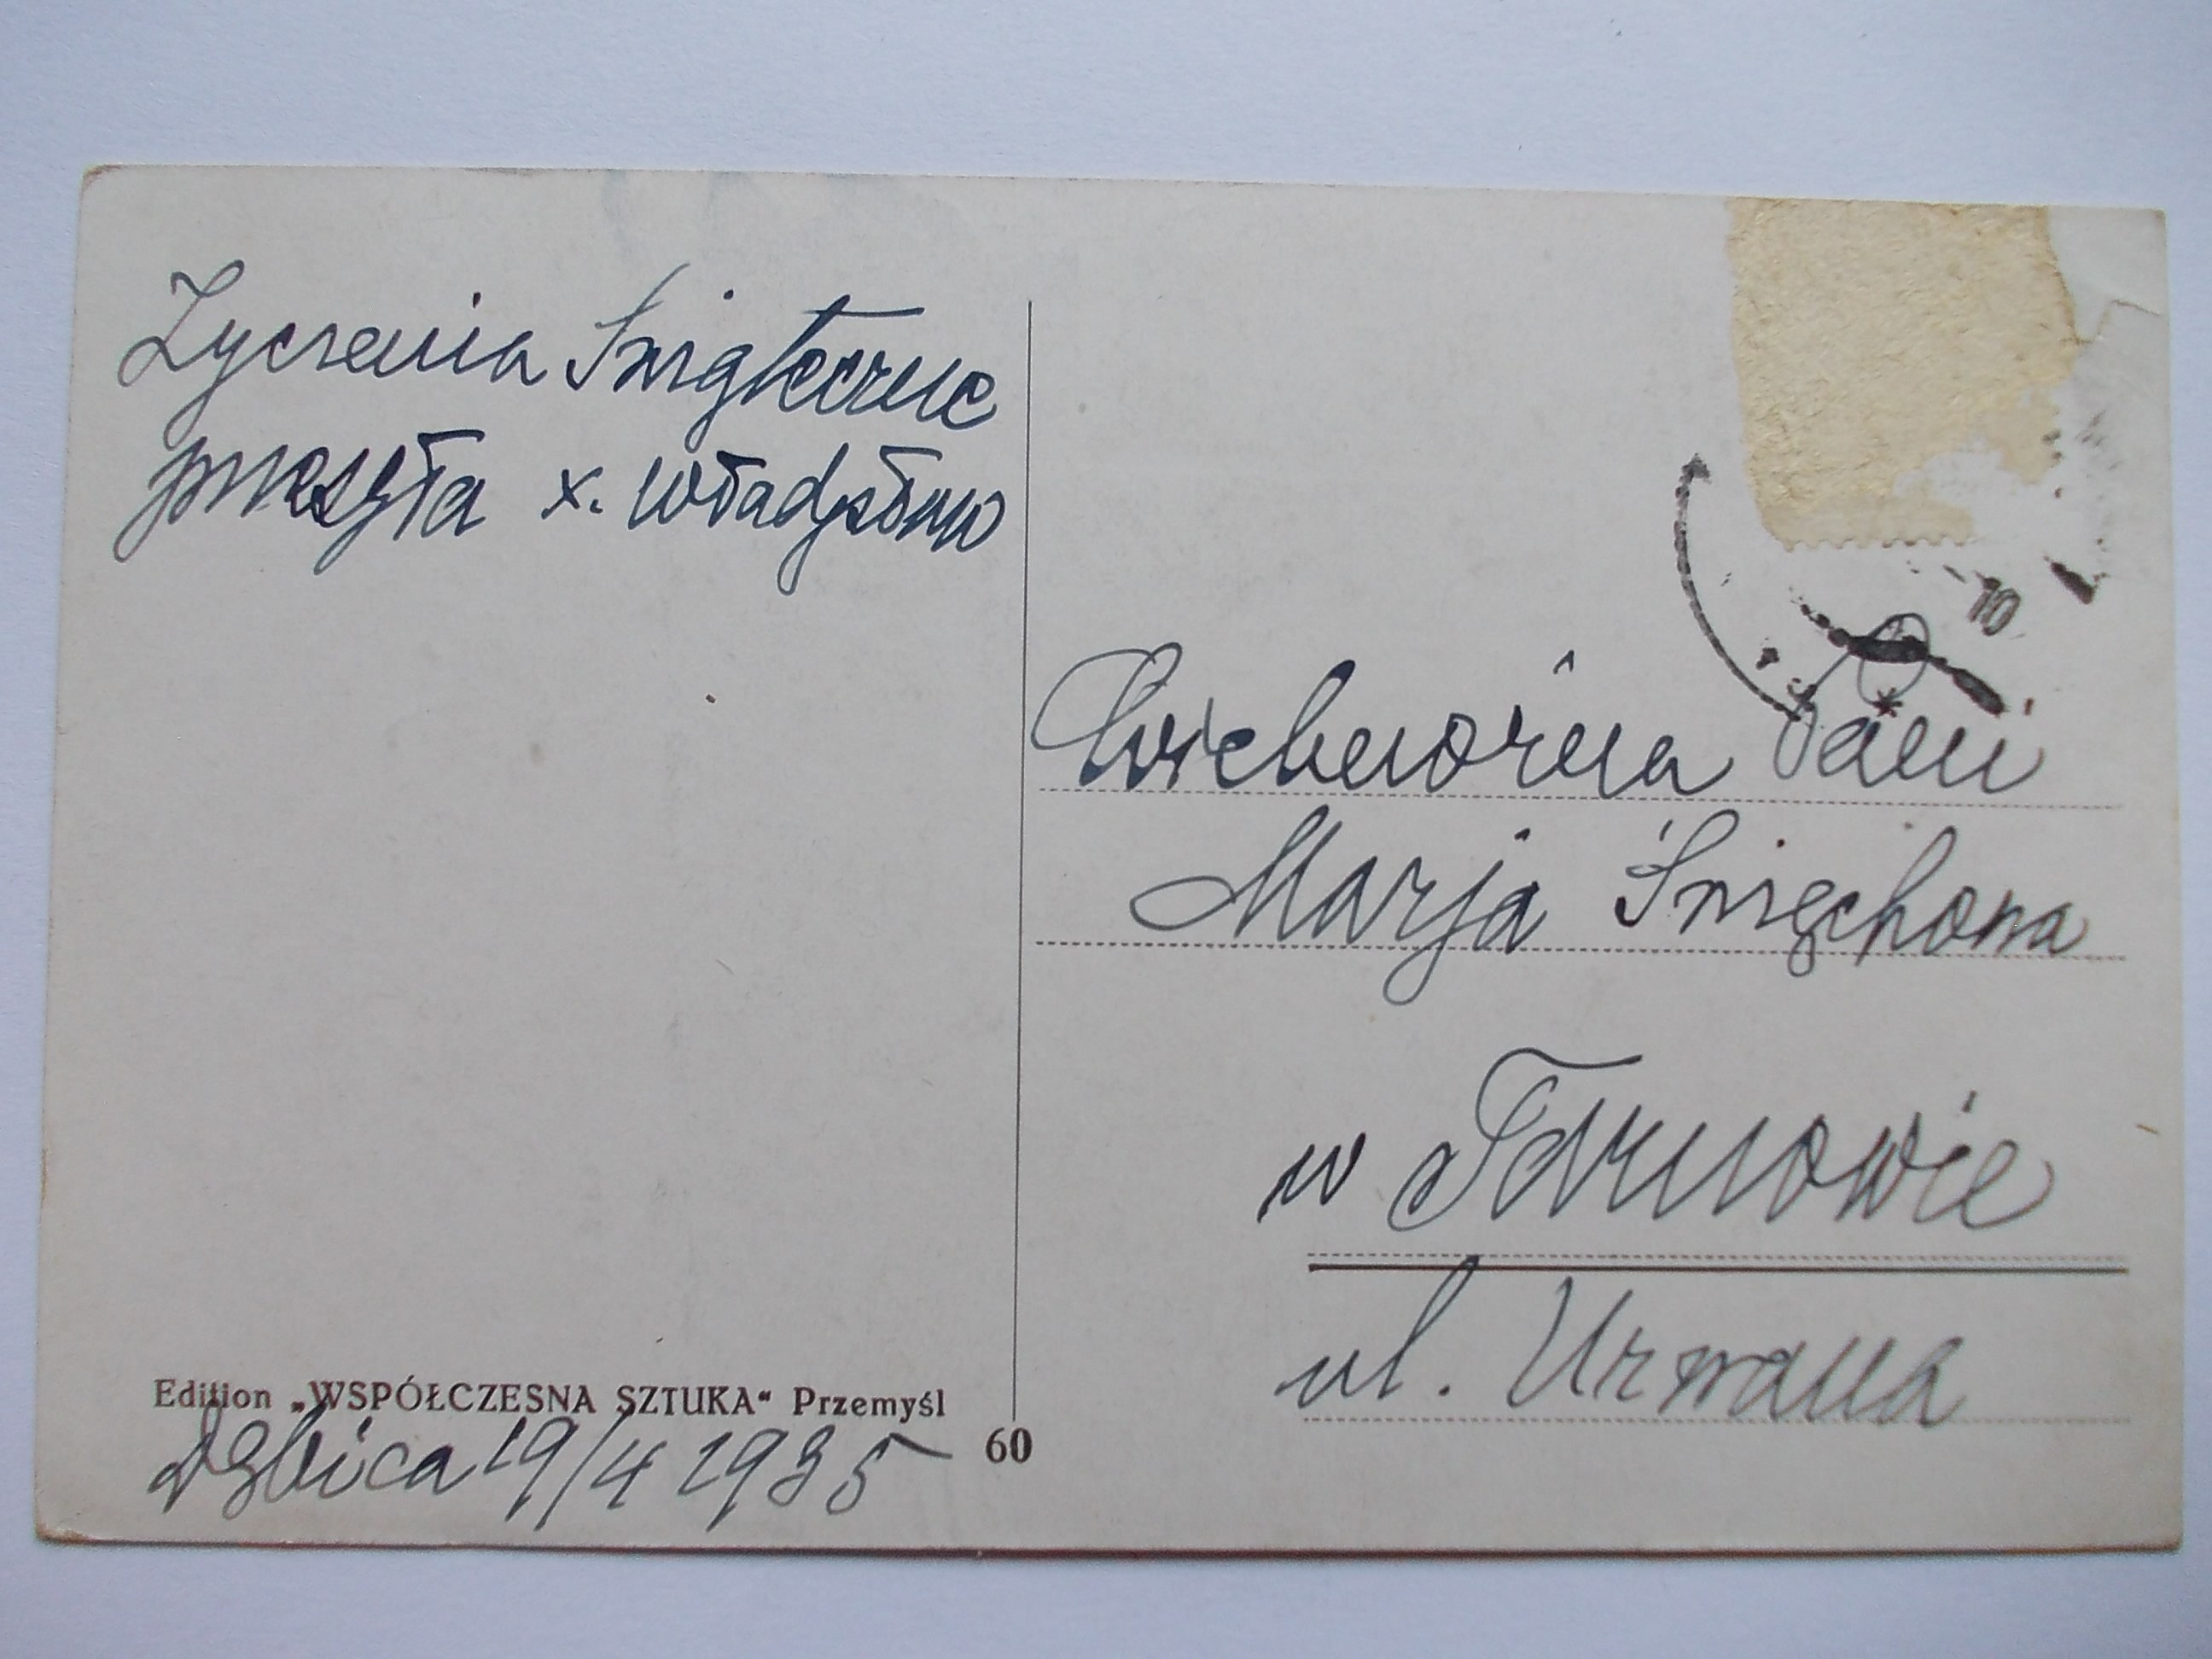 Życzenia Świąteczne
przesyła x. Władysław
10
Wielmożna Pani
Marja Święchowa
w Tarnowie
ul. Urwana
Edition „WSPÓŁCZESNA SZTUKA“ Przemyśl
60
Dębica 19/4 1935